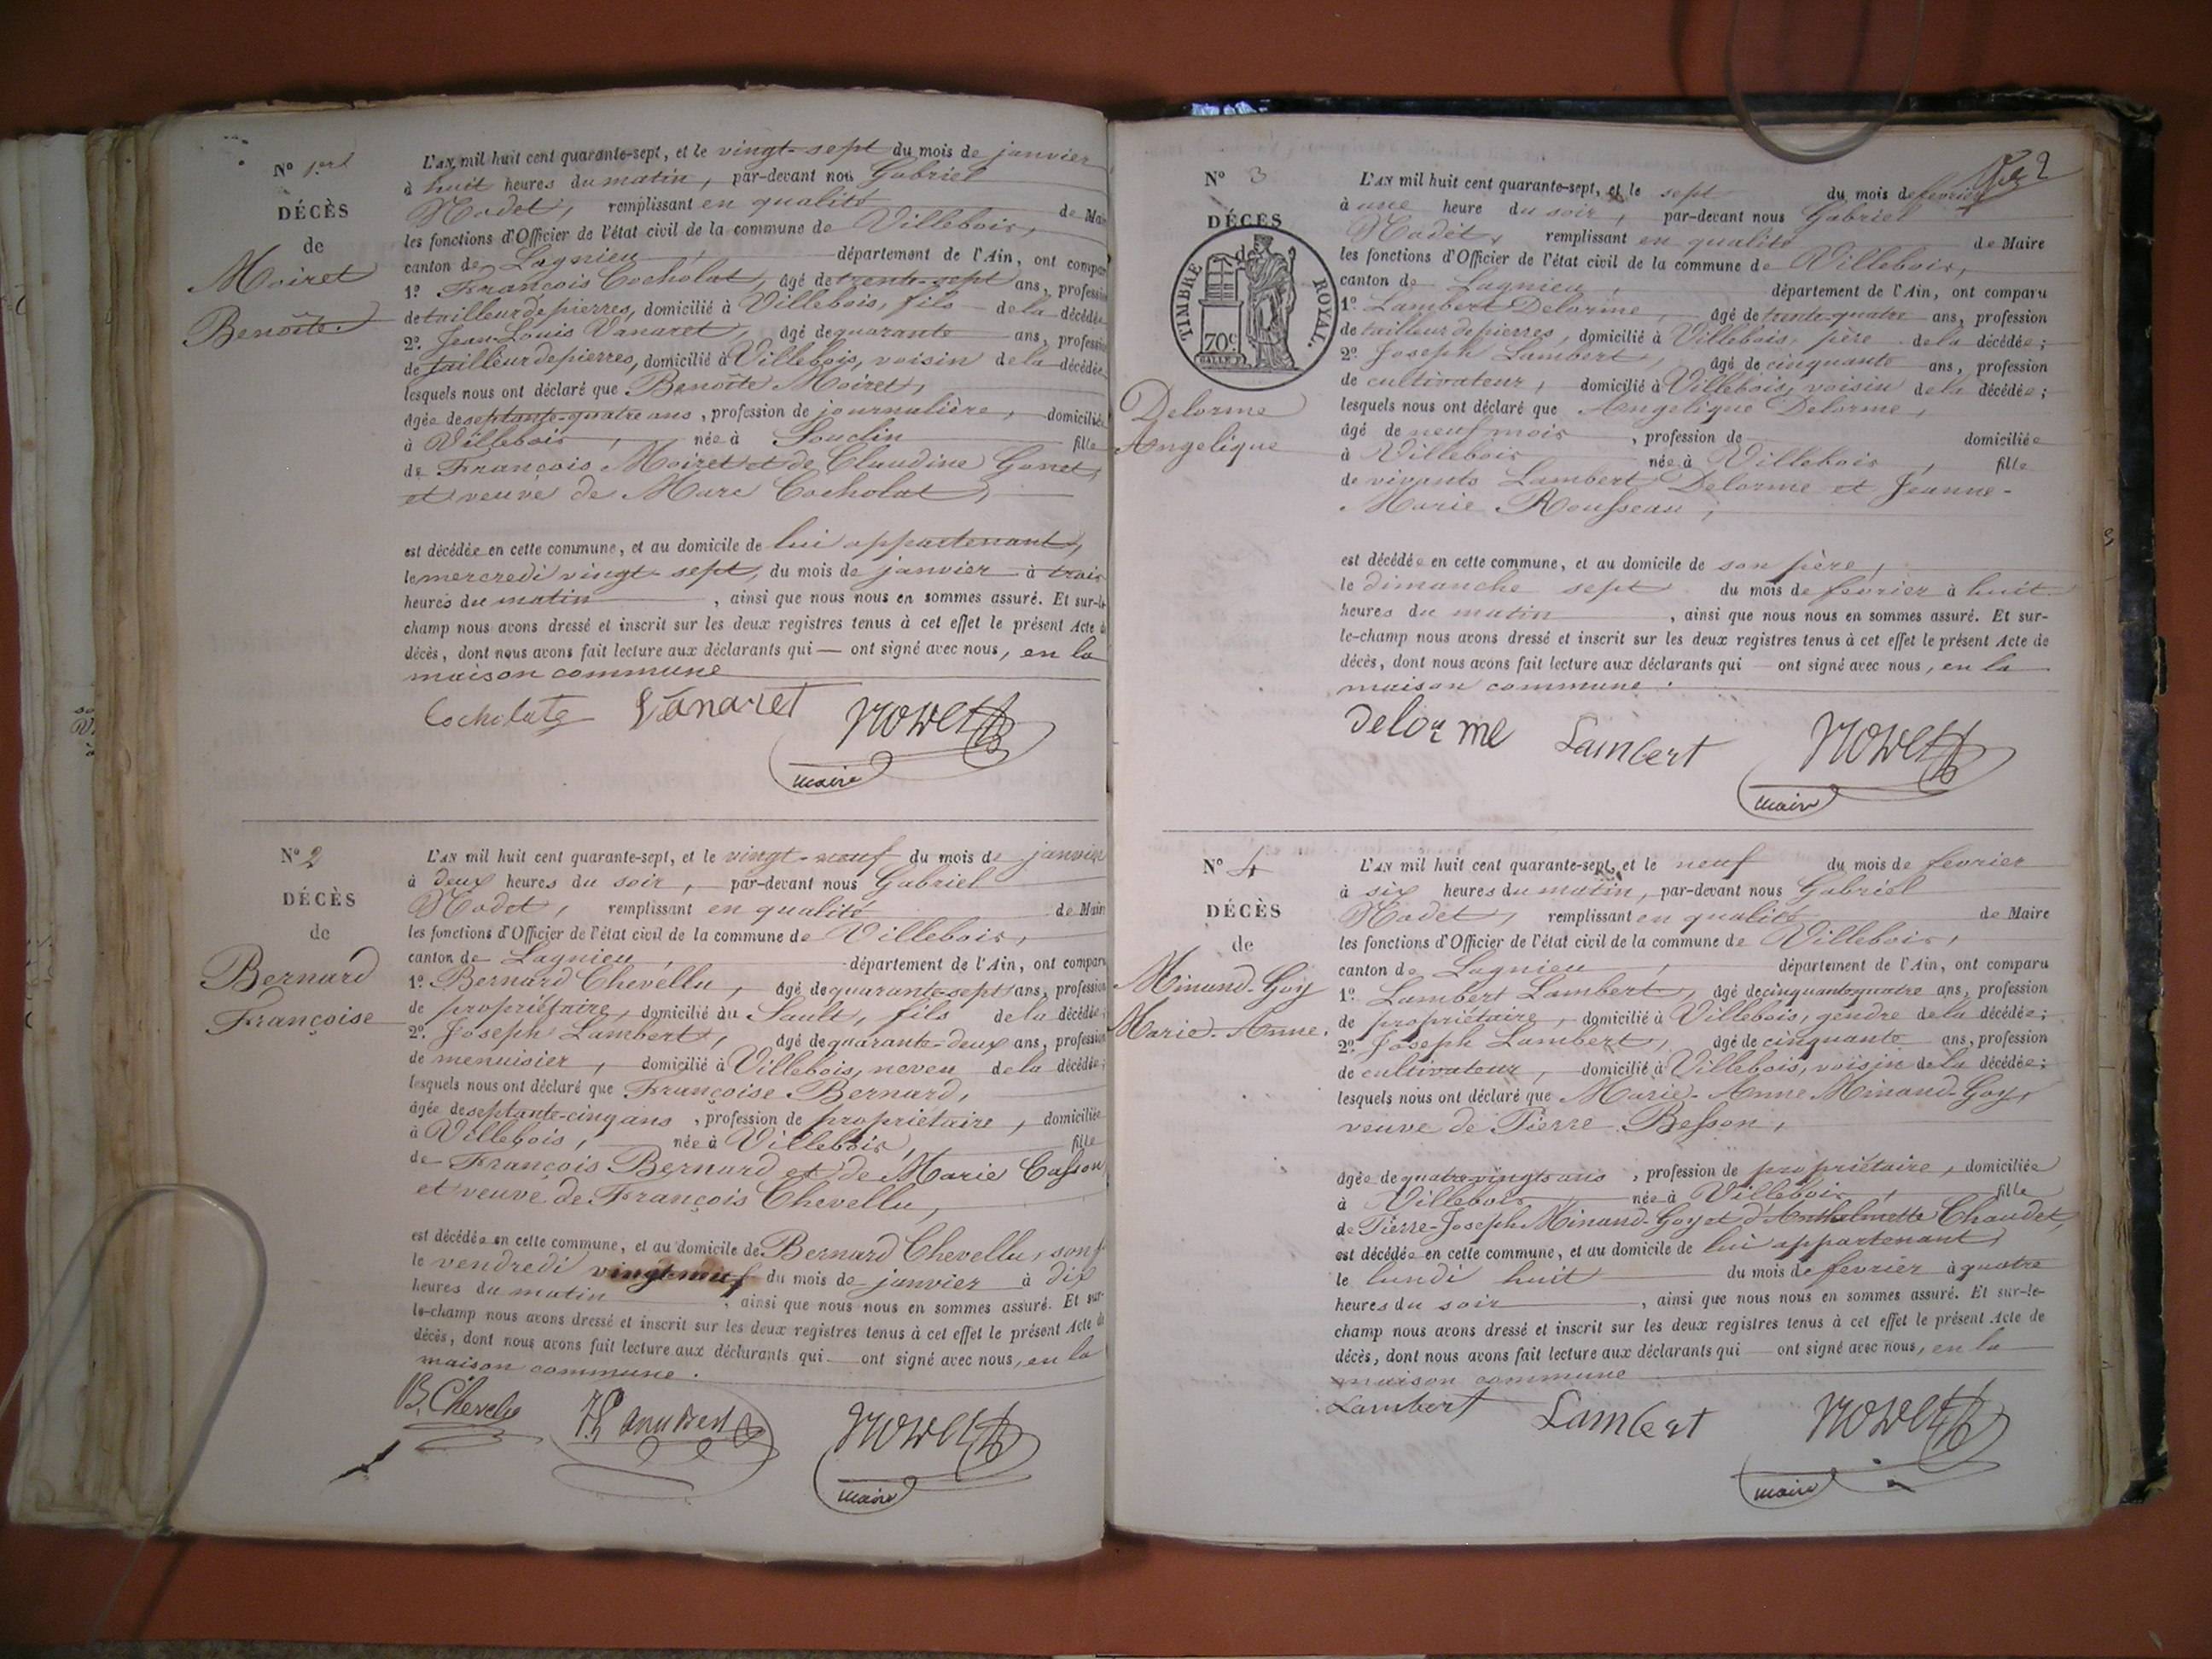 N° 1er
DÉCÈS
de
Moiret
Benoîte
L'AN mil huit cent quarante-sept, et le vingt-sept du mois de janvier
à huit heures du matin, par-devant nous Gabriel
Nodet, remplissant en qualité de Mai
les fonctions d'Officier de l'état civil de la commune de Villebois,
canton de Lagnieu, département de l'Ain, ont compar
1° François Cocholat, âgé de trente-sept ans, profession
de tailleur de pierres, domicilié à Villebois, fils de la décédée
2° Jean-Louis Vanaret, âgé de quarante ans, profession
de tailleur de pierres, domicilié à Villebois, voisin de la décédée
lesquels nous ont déclaré que Benoîte Moiret,
âgée de septante-quatre ans, profession de journalière, domiciliée
à Villebois, née à Souclin fille
de François Moiret et de Claudine Ganet,
et veuve de Marc Cocholat,
est décédée en cette commune, et au domicile de lui appartenant,
le mercredi vingt-sept, du mois de janvier à trois
heures du matin, ainsi que nous nous en sommes assuré. Et sur-le
champ nous avons dressé et inscrit sur les deux registres tenus à cet effet le présent Acte d
décès, dont nous avons fait lecture aux déclarants qui — ont signé avec nous, en la
maison commune
Cocholat Vanaret Nodet
maire
N° 2
DÉCÈS
de
Bernard
Françoise
L'AN mil huit cent quarante-sept, et le vingt-neuf du mois de janvier
à deux heures du soir, par-devant nous Gabriel
Nodet, remplissant en qualité de Mair
les fonctions d'Officier de l'état civil de la commune de Villebois,
canton de Lagnieu, département de l'Ain, ont comparu
1° Bernard Chevellu, âgé de quarante-sept ans, profession
de propriétaire, domicilié au Sault, fils de la décédée;
2° Joseph Lambert, âgé de quarante-deux ans, profession
de menuisier, domicilié à Villebois, neveu de la décédée;
lesquels nous ont déclaré que Françoise Bernard,
âgée de septante-cinq ans, profession de propriétaire, domiciliée
à Villebois, née à Villebois, fille
de François Bernard et de Marie Casson
et veuve de François Chevellu,
est décédée en cette commune, et au domicile de Bernard Chevellu, son f
le vendredi vingt-neuf du mois de janvier à dix
heures du matin, ainsi que nous nous en sommes assuré. Et sur-
le-champ nous avons dressé et inscrit sur les deux registres tenus à cet effet le présent Acte de
décès, dont nous avons fait lecture aux déclarants qui — ont signé avec nous, en la
maison commune.
B. Chevellu Nodet
maire
2
N° 3
DÉCÈS
de
TIMBRE ROYAL.
70c
Delorme
Angelique
L'AN mil huit cent quarante-sept, et le sept du mois de fevrier
à une heure du soir, par-devant nous Gabriel
Nodet, remplissant en qualité de Maire
les fonctions d'Officier de l'état civil de la commune de Villebois,
canton de Lagnieu, département de l'Ain, ont comparu
1° Lambert Delorme, âgé de trente-quatre ans, profession
de tailleur de pierres, domicilié à Villebois, père de la décédée;
2° Joseph Lambert, âgé de cinquante ans, profession
de cultivateur, domicilié à Villebois, voisin de la décédée;
lesquels nous ont déclaré que Angelique Delorme,
âgé de neuf mois, profession de domiciliée
à Villebois née à Villebois, fille
de vivants Lambert Delorme et Jeanne-
Marie Rousseau,
est décédée en cette commune, et au domicile de son père,
le dimanche sept du mois de fevrier à huit
heures du matin, ainsi que nous nous en sommes assuré. Et sur-
le-champ nous avons dressé et inscrit sur les deux registres tenus à cet effet le présent Acte de
décès, dont nous avons fait lecture aux déclarants qui — ont signé avec nous, en la
maison commune.
Delorme Lambert Nodet
maire
N° 4
DÉCÈS
de
Minand-Goy
Marie-Anne.
L'AN mil huit cent quarante-sept, et le neuf du mois de fevrier
à six heures du matin, par-devant nous Gabriel
Nodet, remplissant en qualité de Maire
les fonctions d'Officier de l'état civil de la commune de Villebois,
canton de Lagnieu, département de l'Ain, ont comparu
1° Lambert Lambert, âgé de cinquante-quatre ans, profession
de propriétaire, domicilié à Villebois, gendre de la décédée;
2° Joseph Lambert, âgé de cinquante ans, profession
de cultivateur, domicilié à Villebois, voisin de la décédée;
lesquels nous ont déclaré que Marie-Anne Minand-Goy,
veuve de Pierre Besson,
âgée de quatre-vingts ans, profession de propriétaire, domiciliée
à Villebois née à Villebois, fille
de Pierre-Joseph Minand-Goy et d'Anthelmette Chaudet,
est décédée en cette commune, et au domicile de lui appartenant,
le lundi huit du mois de fevrier à quatre
heures du soir, ainsi que nous nous en sommes assuré. Et sur-le-
champ nous avons dressé et inscrit sur les deux registres tenus à cet effet le présent Acte de
décès, dont nous avons fait lecture aux déclarants qui — ont signé avec nous, en la
maison commune
Lambert Lambert Nodet
maire